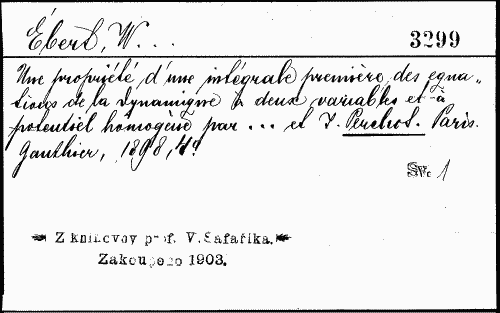 Ébert, W...
3299
Une propriété d'une intégrale première des equa„
tions de la Dynamique à deux variables et à
potentiel homogène par ... et J. Perchot. Paris.
Gauthier, 1898, 4°
Sv. 1
Z knihovny prof. V. Šafaříka.
Zakoupeno 1903.